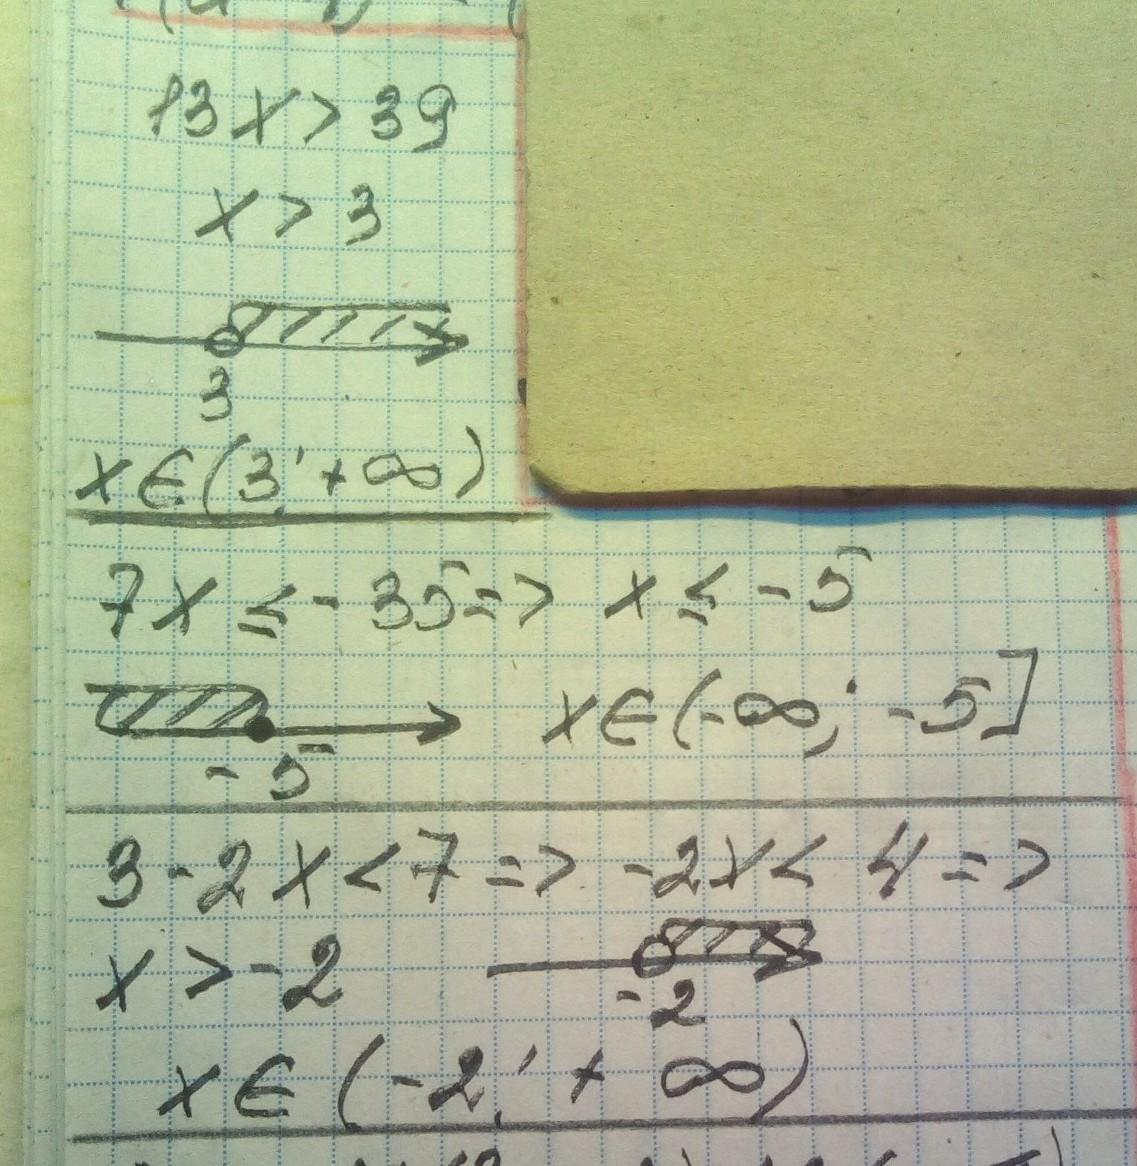 13x > 39
x > 3
3
x∈(3; +∞)
7x ≤ -35 => x ≤ -5
-5
x∈(-∞; -5]
3-2x<7 => -2x< 4 =>
x > -2
-2
x∈(-2; +∞)